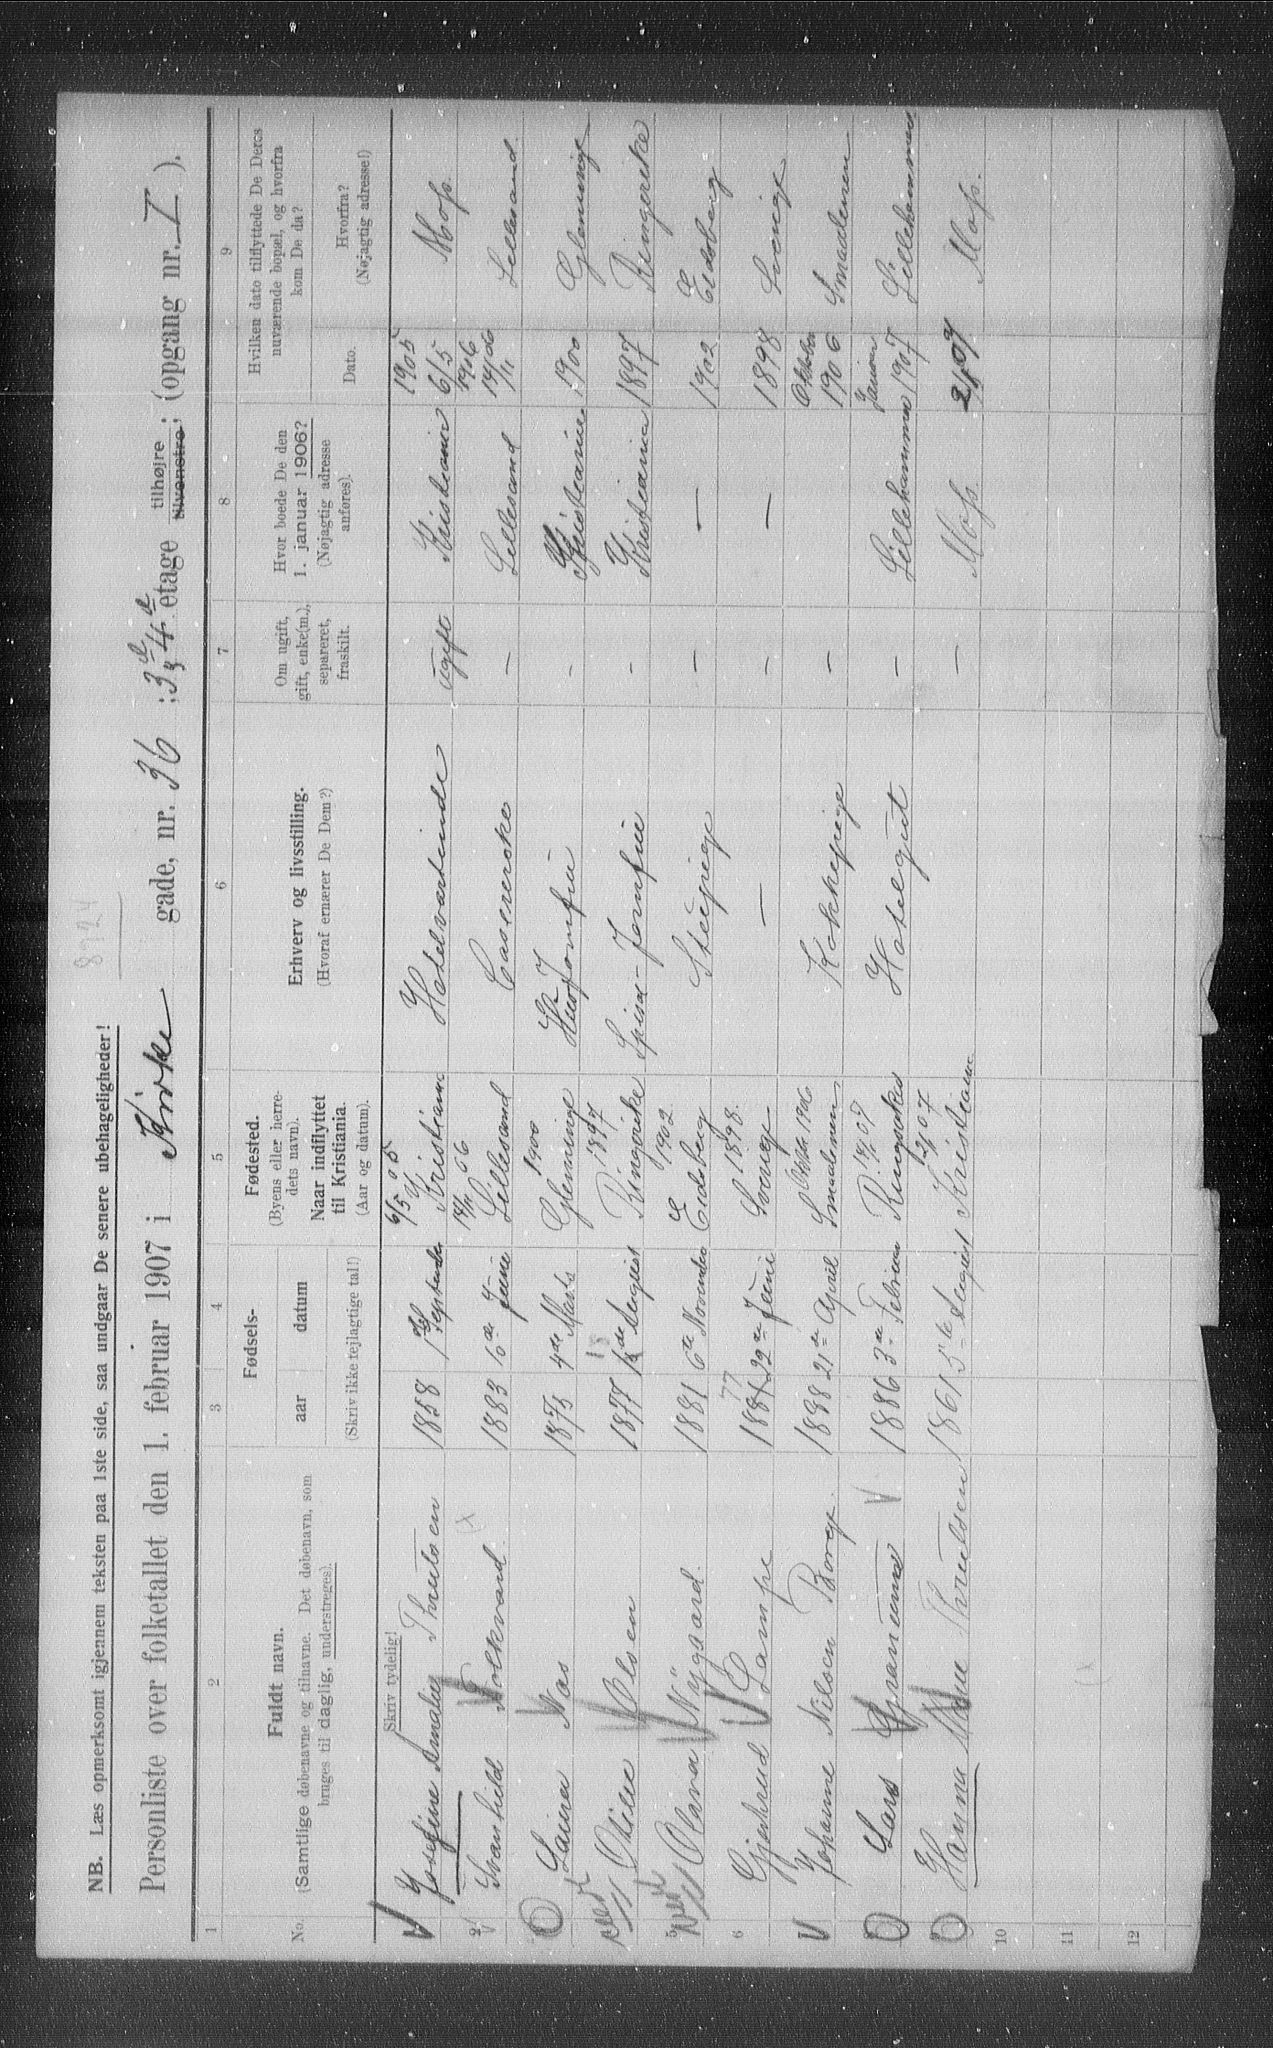 NB. Læs opmerksomt igjennem teksten paa 1ste side, saa undgaar De senere ubehageligheder!
8924
Personliste over folketallet den 1. februar 1907 i Kirke gade, nr. 36 ; 3die & 4de etage tilhøjre tilvenstre ; (opgang nr. I ).
1 2 3 4 5 6 7 8 9
No. Fuldt navn.
(Samtlige døbenavne og tilnavne. Det døbenavn, som
bruges til daglig, understreges).
Fødsels-
aar datum
(Skriv ikke tejlagtige tal!)
Fødested.
(Byens eller herre-
dets navn).
Naar indflyttet
til Kristiania.
(Aar og datum).
Erhverv og livsstilling.
(Hvoraf ernærer De Dem?)
Om ugift,
gift, enke(m.),
separeret,
fraskilt.
Hvor boede De den
1. januar 1906?
(Nøjagtig adresse
anføres).
Hvilken dato tilflyttede De Deres
nuværende bopæl, og hvorfra
kom De da?
Dato. Hvorfra?
(Nøjagtig adresse!)
Skriv tydelig!
Josefine Amalie Thrulsen 1858 1ste September 6/5 05 Kristiania Hotelværtinde ugift Kristiania 1905 6/5 Moss.
2 Svanhild Folkvard. 1883 10de June 14/11 06 Lillesand Casererske — Lillesand 1906 14/11 Lillesand
Laura Aas 1875 4de Marts 1900 Glemminge Husjomfru - Kristiania 1900 Glemminge
Otilie Olsen 1877 August 1897 Ringerike Spise-Jomfru - Kristiania 1897 Ringerike
5 Olava Nygaard 1881 6te November 1902 Eidsberg Stuepige — — 1902 Eidsberg
6 Gjertrud Lampe 1881 77 22de Juni 1898. Sverige — — — 1898 Sverige
Johanne Nilsen Borge. 1888 21de April Oktober 1906 Smaalenene Kokkepige — Oktober 1906 Smaalenene
Lars Granum 1886 3de Februar 07 Ringsaker Hotelgut — Lillehammer Januar 1907 Lillehammer
Hanna Thrulsen 1861 5te August 07 Kristiania — Moss. 07 Moss.
10
11
12